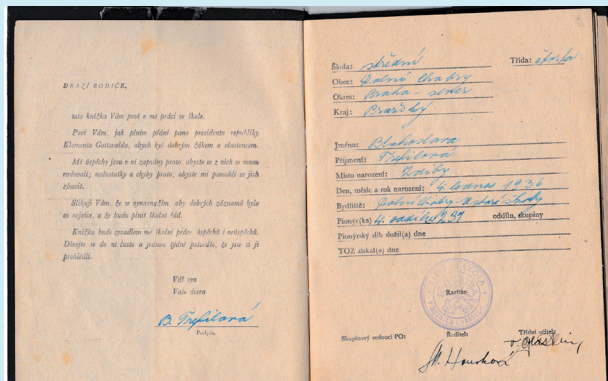 DRAZÍ RODIČE,
tato knížka Vám poví o mé práci ve škole.
Poví Vám, jak plním přání pana presidenta republiky
Klementa Gottwalda, abych byl dobrým žákem a vlastencem.
Mé úspěchy jsou v ní zapsány proto, abyste se z nich se mnou
radovali; nedostatky a chyby proto, abyste mi pomohli se jich
zbavit.
Slibuji Vám, že se vynasnažím, aby dobrých záznamů bylo
co nejvíce, a že budu plnit školní řád.
Knížka bude zrcadlem mé školní práce úspěchů i neúspěchů.
Dívejte se do ní často a jednou týdně potvrďte, že jste si ji
prohlédli.
Váš syn
Vaše dcera
B. Trefilová
Podpis.
Škola: střední Třída: čtvrtá
Obec: Dolní Chabry
Okres: Praha - sever
Kraj: Pražský
Jméno: Blahoslava
Příjmení: Trefilová
Místo narození: Zdiby
Den, měsíc a rok narození: 4. ledna 1936
Bydliště: Dolní Chabry
Pionýr(ka) 4. oddílu 237 oddílu, skupiny
Pionýrský slib složil(a) dne
TOZ získal(a) dne
Razítko
Skupinový vedoucí PO: Ředitel: Třídní učitel: